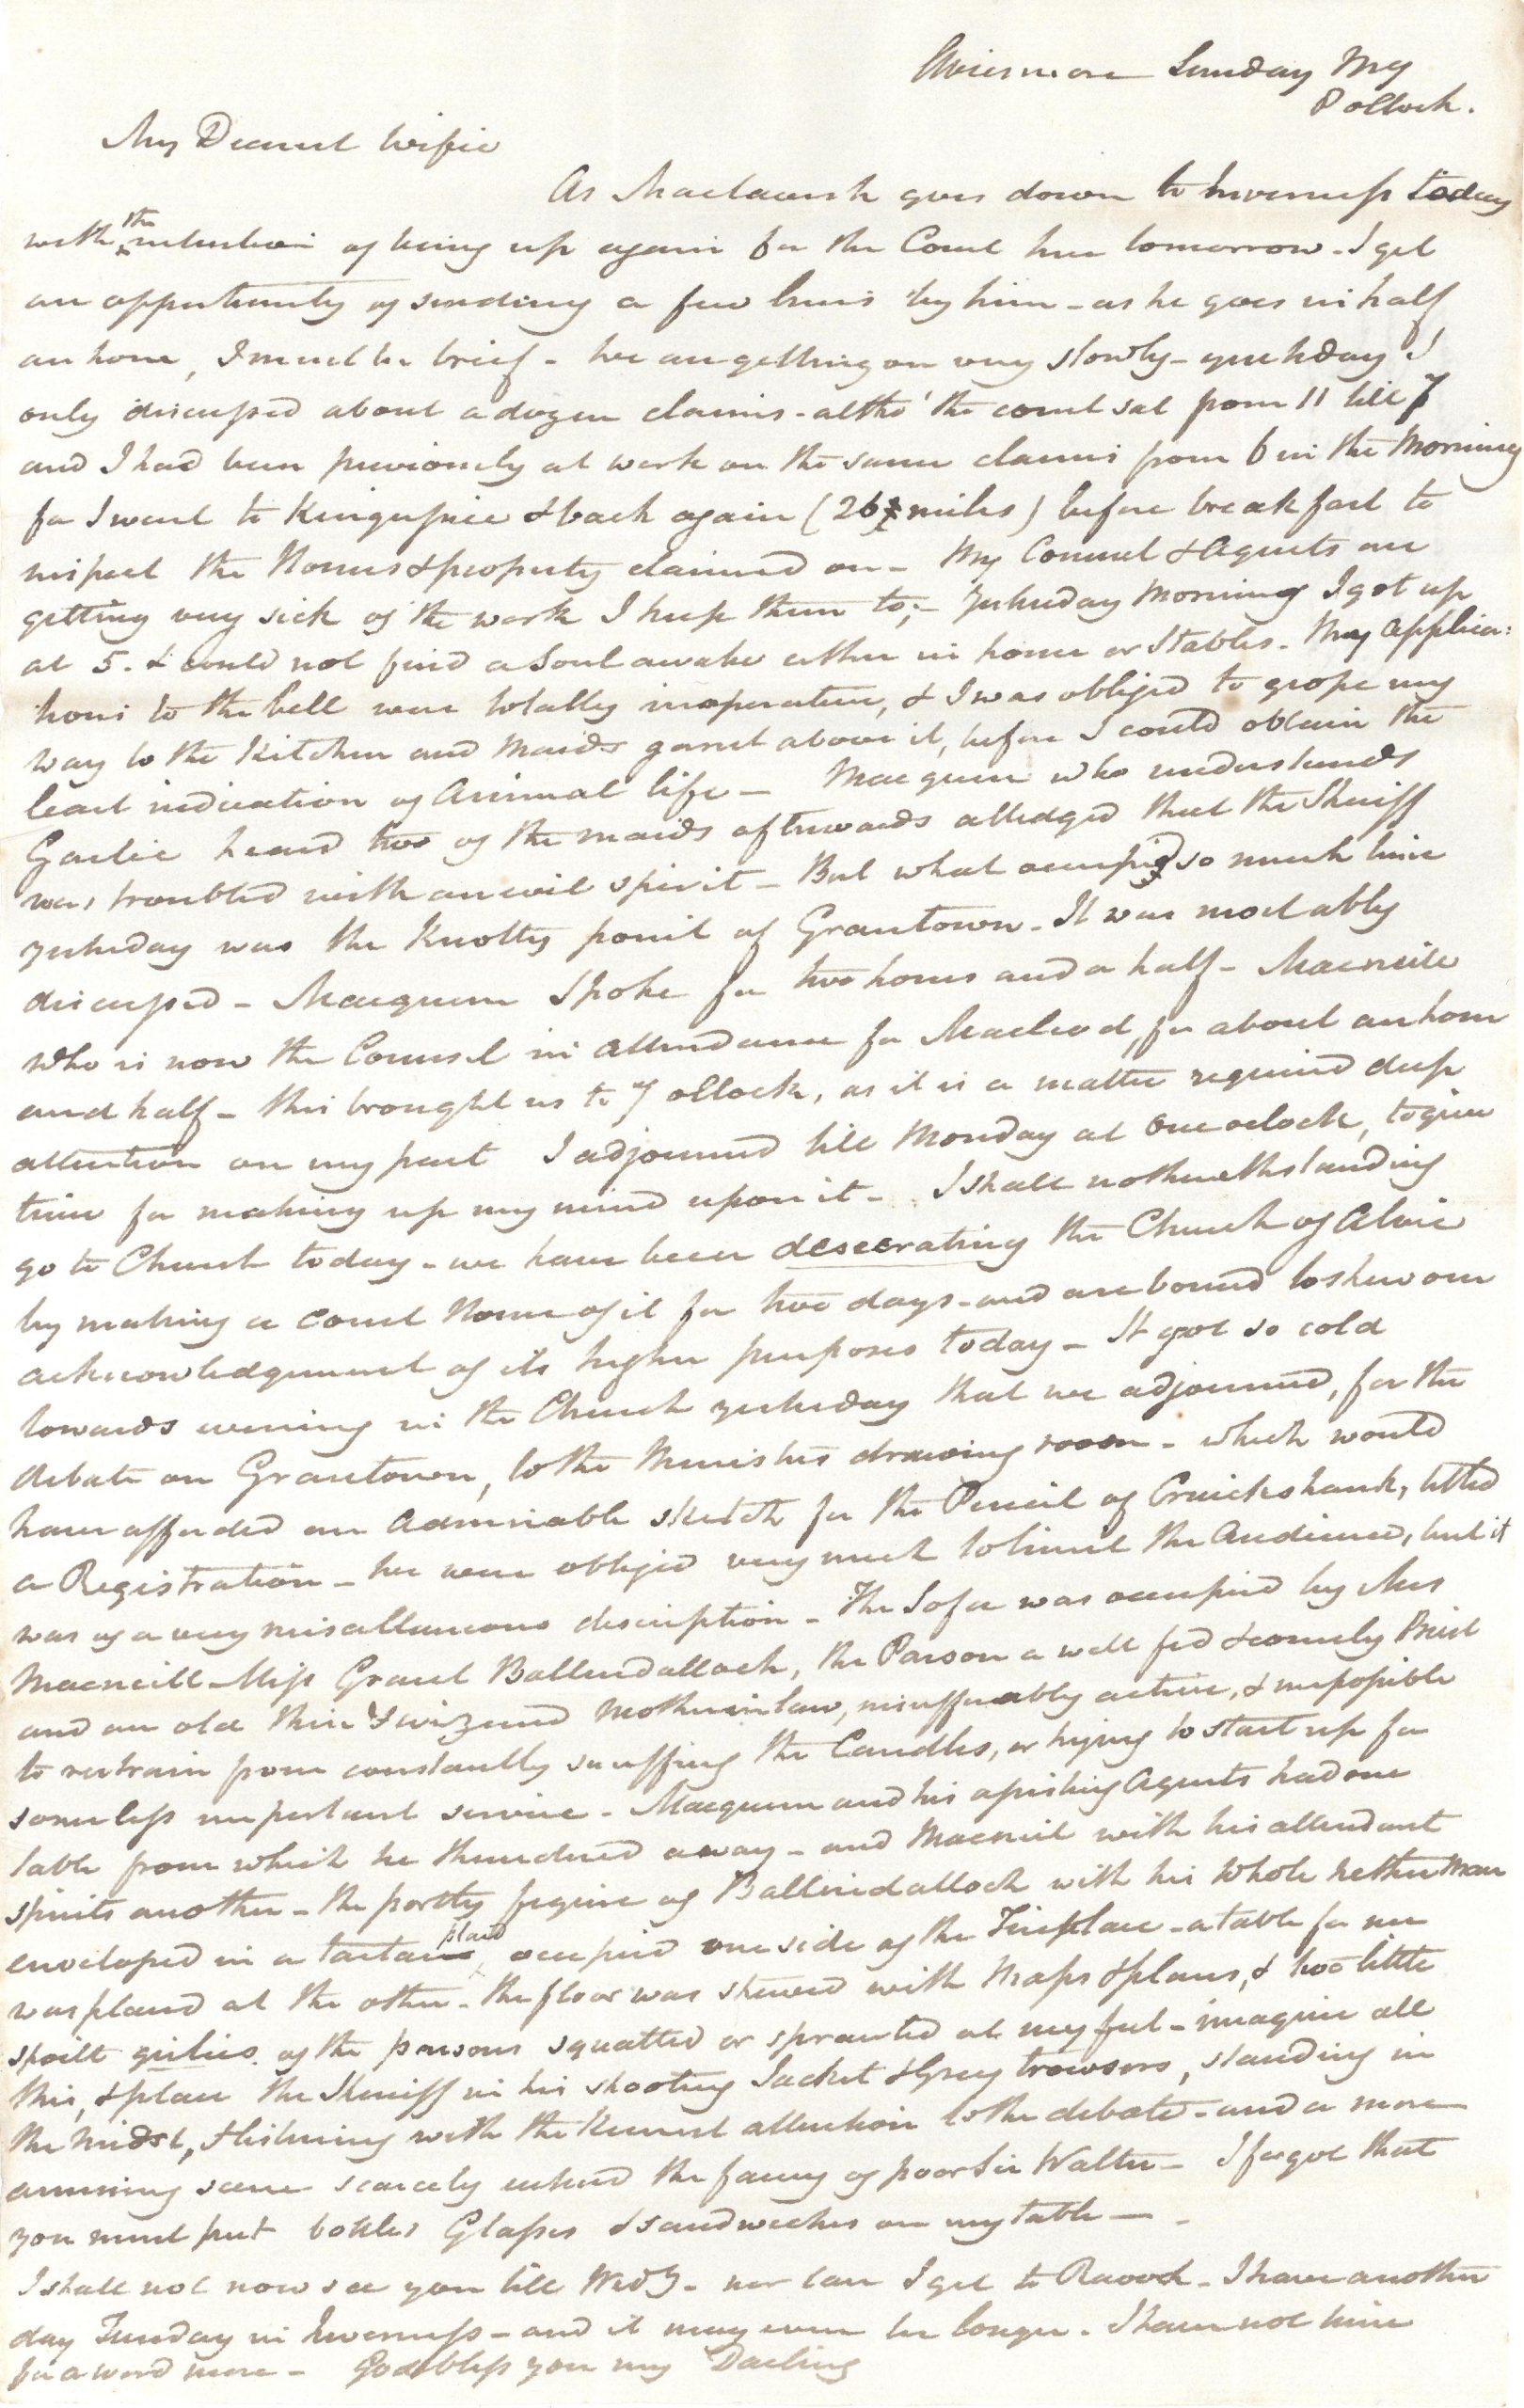 Aviemore Sunday Mg
8 oClock.
My Dearest Wifie
As Mactavish goes down to Inverness today
with the intention of being up again for the Court here tomorrow. I get
an opportunity of sending a few lines by him - as he goes in half
an hour, I must be brief - We are getting on very slowly - yesterday I
only discussed about a dozen claims - altho' the court sat from 11 till 7
and I had been previously at work on the same claims from 6 in the Morning
for I went to Kingussie & back again (26 miles) before breakfast to
inspect the Houses & property claimed on - My Counsel & Agents are
getting very sick of the work I keep them to; - Yesterday Morning I got up
at 5. & could not find a Soul awake either in house or Stables. My applica:
tions to the bell were totally inoperative, & I was obliged to grope my
way to the Kitchen and Maids garret above it, before I could obtain the
least indication of Animal life - Macqueen who understands
Gaelic heard two of the maids afterwards alledged that the Sheriff
was troubled with an evil spirit - But what occupied so much time
yesterday was the Knotty point of Grantown. It was most ably
discussed - Macqueen Spoke for two hours and a half - Macneile
who is now the Counsel in attendance for Macleod, for about an hour
and half - this brought us to 7 oClock, as it is a matter required deep
attention on my part I adjourned till Monday at One oclock, to give
time for making up my mind upon it - I shall nothwithstanding
go to Church today - we have been desecrating the Church of Alvie
by making a court House of it for two days - and are bound to shew our
acknowledgement of its higher purposes today - It got so cold
towards evening in the Church yesterday that we adjourned, for the
debate on Grantown, to the Ministers drawing room - which would
have afforded an Admirable sketch for the Pencil of Cruickshank, titled
a Registration - We were obliged very much to limit the Audience, but it
was of a very misallaneous description - The Sofa was occupied by Mrs
Macneill - Miss Grant Ballindalloch, the Parson a well fed & comely Priest
and an old thin & wizened Mother in law, insufferably active, & impossible
to restrain from constantly snuffing the Candles, or trying to start up for
some less important service - Macqueen and his Agents had one
table from which he thundered away - and Macneil with his attendant
spirits another - the portly figure of Ballindalloch with his whole nether Man
enveloped in a tartan plaid, occupied one side of the Fireplace - a table for me
was placed at the other - the floor was strewed with Maps & plans, & two little
spoilt gillies of the parsons squatted or sprawled at my feet - imagine all
this, & place the Sheriff in his shooting Jacket & Grey trowsers, standing in
the midst, & listening with the Keenest attention to the debate - and a more
amusing scene scarcely entered the fancy of poor Sir Walter - I forgot that
you must put bottles Glasses & sandwiches on my table -
I shall not now see you till Wedy - nor can I get to - I have another
day Tuesday in Inverness - and it may even be longer. I have not time
for a word more - God bless you my Darling